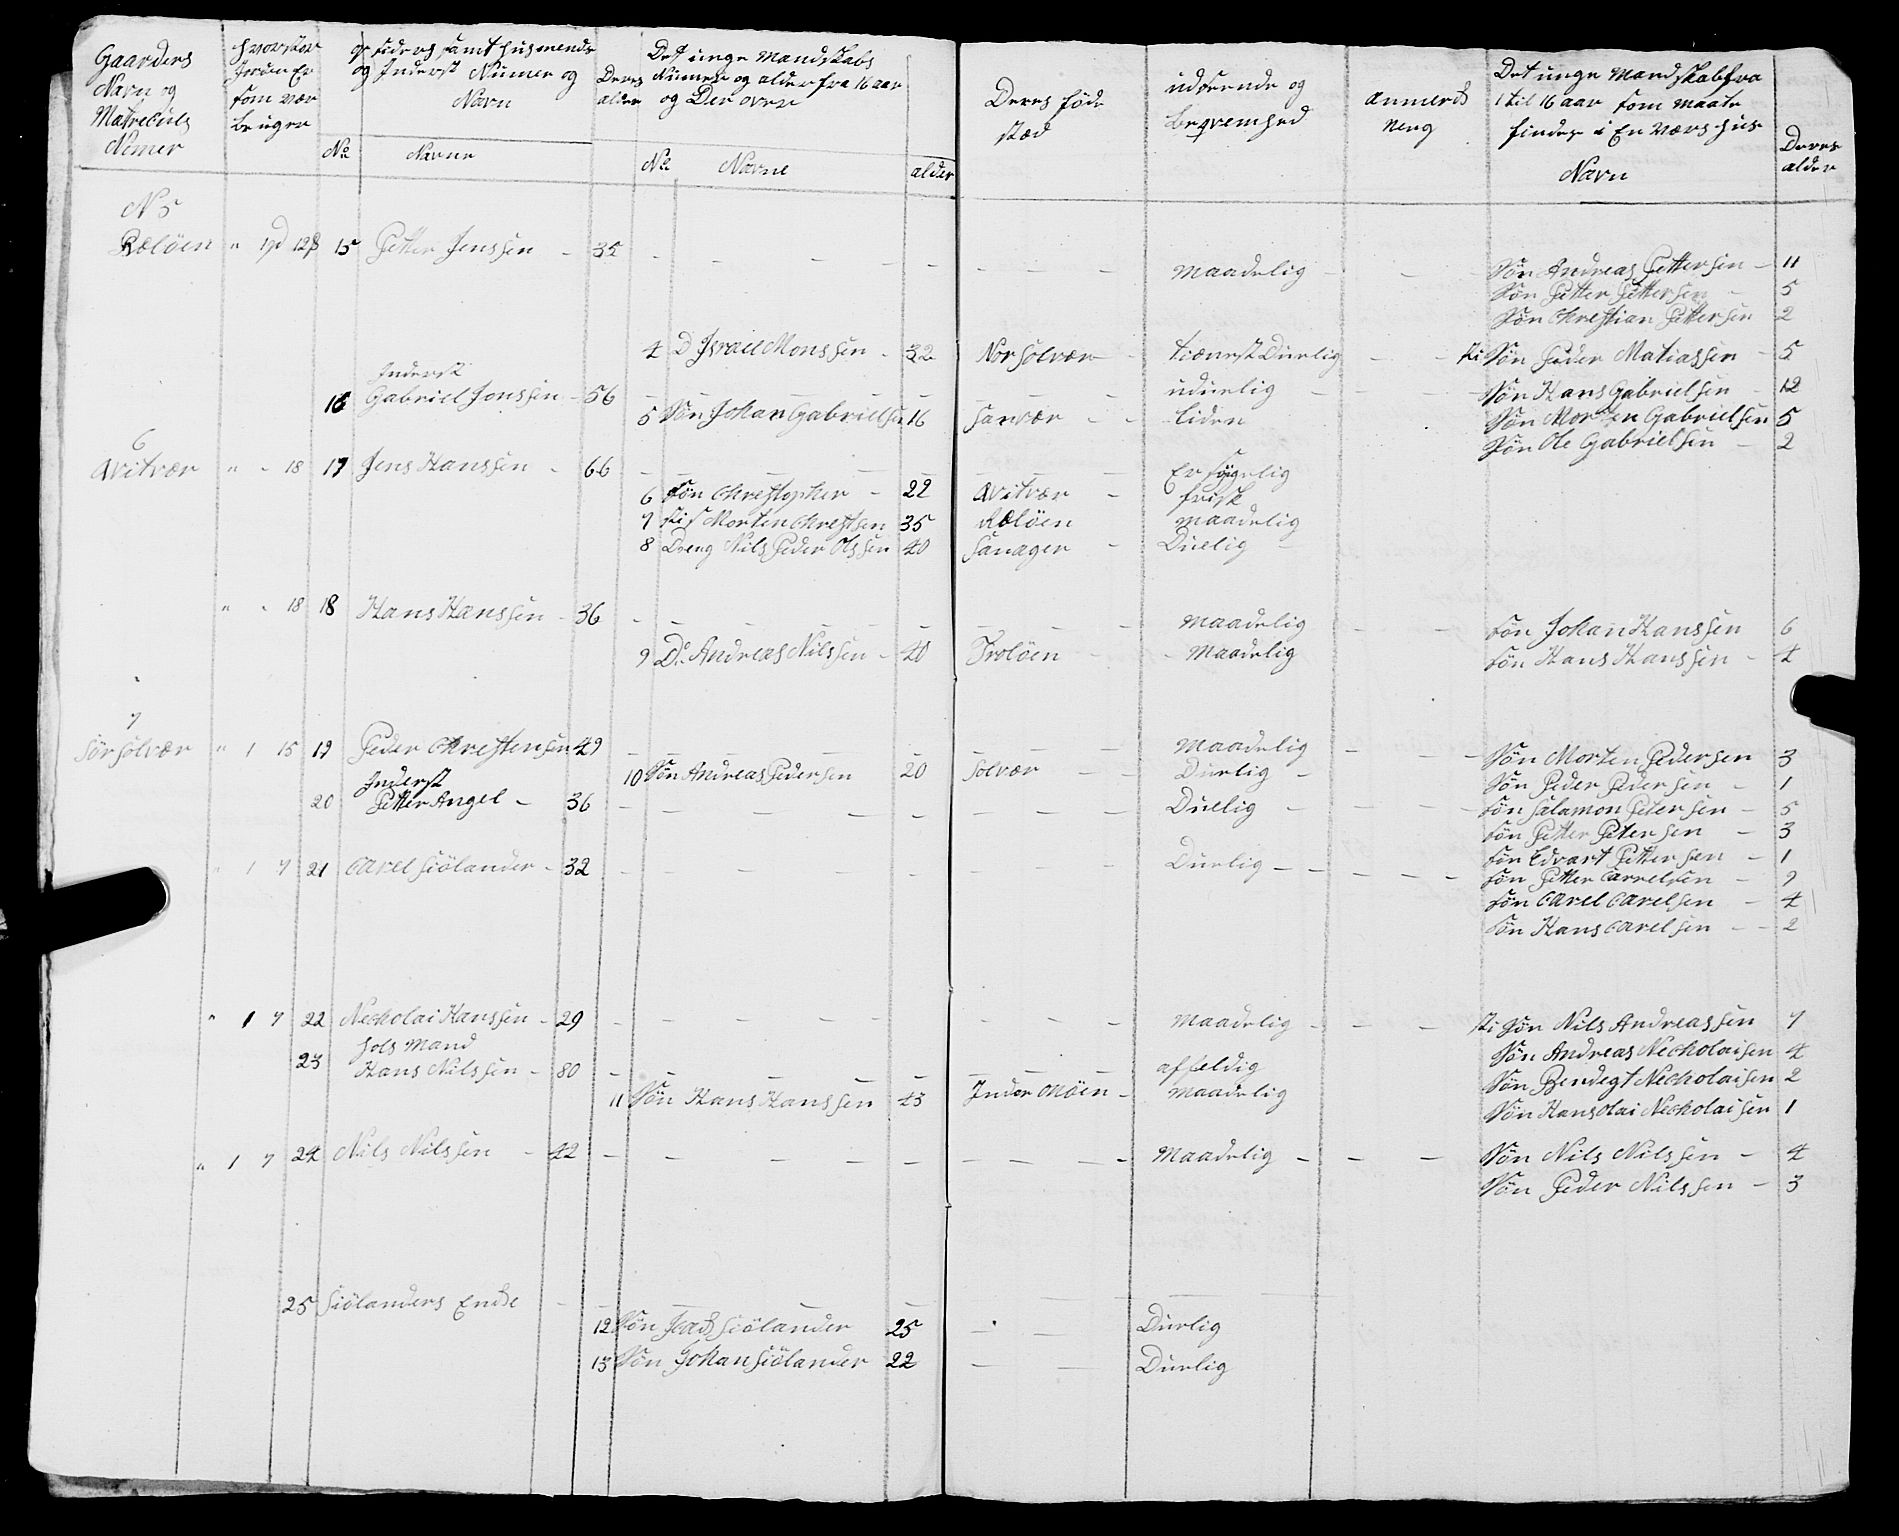 Gaarders
Navn og
Matreculs
Nomer
hvorstor
Jorden Er
som vær
bruger
og Jnderst Numer og
Navn
No
Navne
Deres
alder
Det unge Mandskabs
Numer og alder fra 16 aar
og Der over
No
Navne
alder
Deres føde
stæd
udseende og
beqvemhed
anmerck
ning
Det unge Mandskab fra
1 til 16 aar som maate
findes i En Værs hus
Navn
Deres
alder
N 5
Rælöen " 1pd 12 15 Petter Jenssen - 35
Maadelig
Sön Andreas Pettersen - 11
Sön Petter Pettersen - 5
Sön Chrestian Pettersen 2
4 D Israel Monssen - 32 Nor solvær tienest Duelig sti Sön Peder Matiassen - 5
Inderst
16 Gabriel Jonssen - 56 udulig Sön Hans Gabrielsen - 12
5 Sön Johan Gabrielsen 16 sanvær liden Sön Morten Gabrielsen 5
Sön Ole Gabrielsen - 2
6
Qvitvær " - 18 17 Jens Hanssen - 66 Er sögelig
6 Sön Chrestopher - 22 Qvitvær - frisk
7 stif Morten Chrestsen 35 Rælöen Maadelig
8 Dreng Nils Peder Olssen 40 sanagen - Duelig -
" - 18 18 Hans Hanssen - 36 Maadelig sön Johan Hanssen 6
9 D. Andreas Nilssen - 40 Trolöen - Maadelig sön Hans Hanssen - 4
7
Sör solvær " 1 15 19 Peder Chrestensen 49 Maadelig Sön Morten Pedersen 3
10 Sön Andreas Pedersen 20 solvær Duelig - Sön Peder Pedersen - 1
Inderst
20 Petter Angel - 36 Duelig sön salamon Petersen - 5
sön Petter Petersen - 3
" 1 7 21 Carel siölander - 32 Duelig sön Edvart Pettersen - 1
sön Petter Carrelsen - 9
sön Carel Carelsen - 4
sön Hans Carelsen - 2
" 1 7 22 Necholai Hanssen - 29 Maadelig sti sön Nils Andreassen 7
hols Mand
23 Hans Nilssen - 80 affeldig Sön Andreas Necholaisen 4
11 Sön Hans Hanssen 43 Inder Möen - Maadelig Sön Bendegt Necholaisen 2
Sön Hans olai Necholaisen 1
" 1 7 24 Nils Nilssen - 42 Maadelig Sön Nils Nilssen - 4
Sön Peder Nilssen - 3
25 siölanders Encke
12 Sön siölander 25 Duelig
13 Sön Johan siölander 22 Duelig